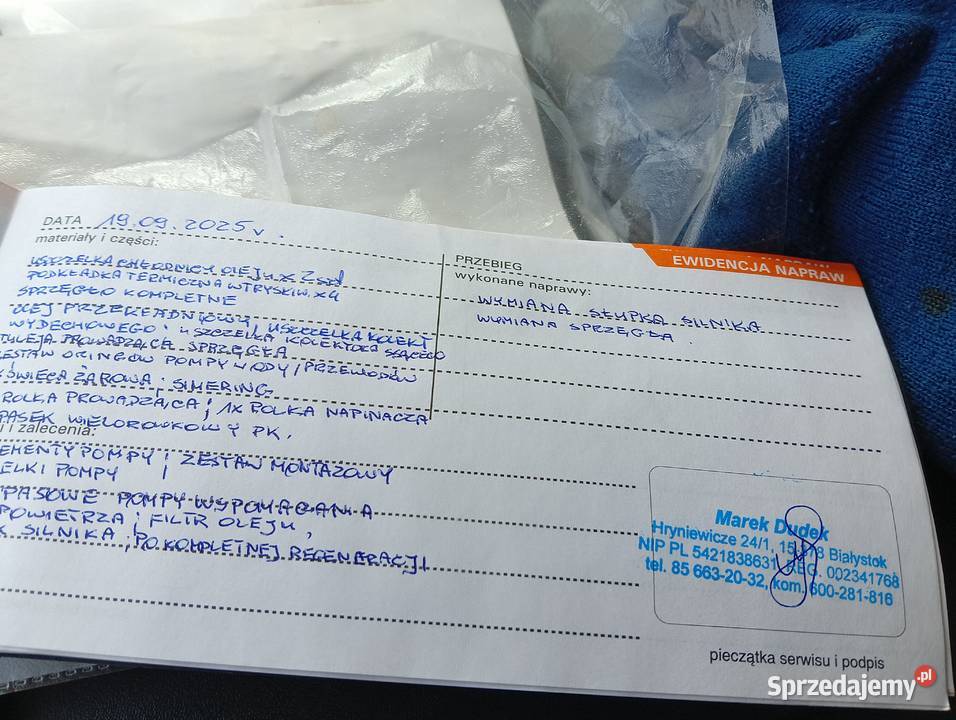 DATA 19.09.2025 r.
materiały i części:
USZCZELKA CHŁODNICY OLEJU x 2 szt
PODKŁADKA TERMICZNA WTRYSKIW. x4
SPRZĘGŁO KOMPLETNE
OLEJ PRZEKŁADNIOWY, USZCZELKA KOLEKT
WYDECHOWEGO; USZCZELKA KOLEKTORA SSĄCEGO
TULEJA PROWADZĄCA SPRZĘGŁA
ZESTAW ORINGÓW POMPY WODY / PRZEWODÓW
ŚWIECA ŻAROWA; SIMERING
ROLKA PROWADZĄCA; 1x ROLKA NAPINACZA
PASEK WIELOROWKOWY PK.
i zalecenia:
EMENTY POMPY; ZESTAW MONTAŻOWY
ELKI POMPY
PASOWE POMPY WSPOMAGANIA
POWIETRZA; FILTR OLEJU,
K SILNIKA, PO KOMPLETNEJ REGENERACJI
PRZEBIEG
EWIDENCJA NAPRAW
wykonane naprawy:
WYMIANA SŁUPKA SILNIKA
WYMIANA SPRZĘGŁA.
Marek Dudek
Hryniewicze 24/1, Białystok
NIP PL 5421838631, REG. 002341768
tel. 85 663-20-32, kom. 600-281-816
pieczątka serwisu i podpis
Sprzedajemy.pl